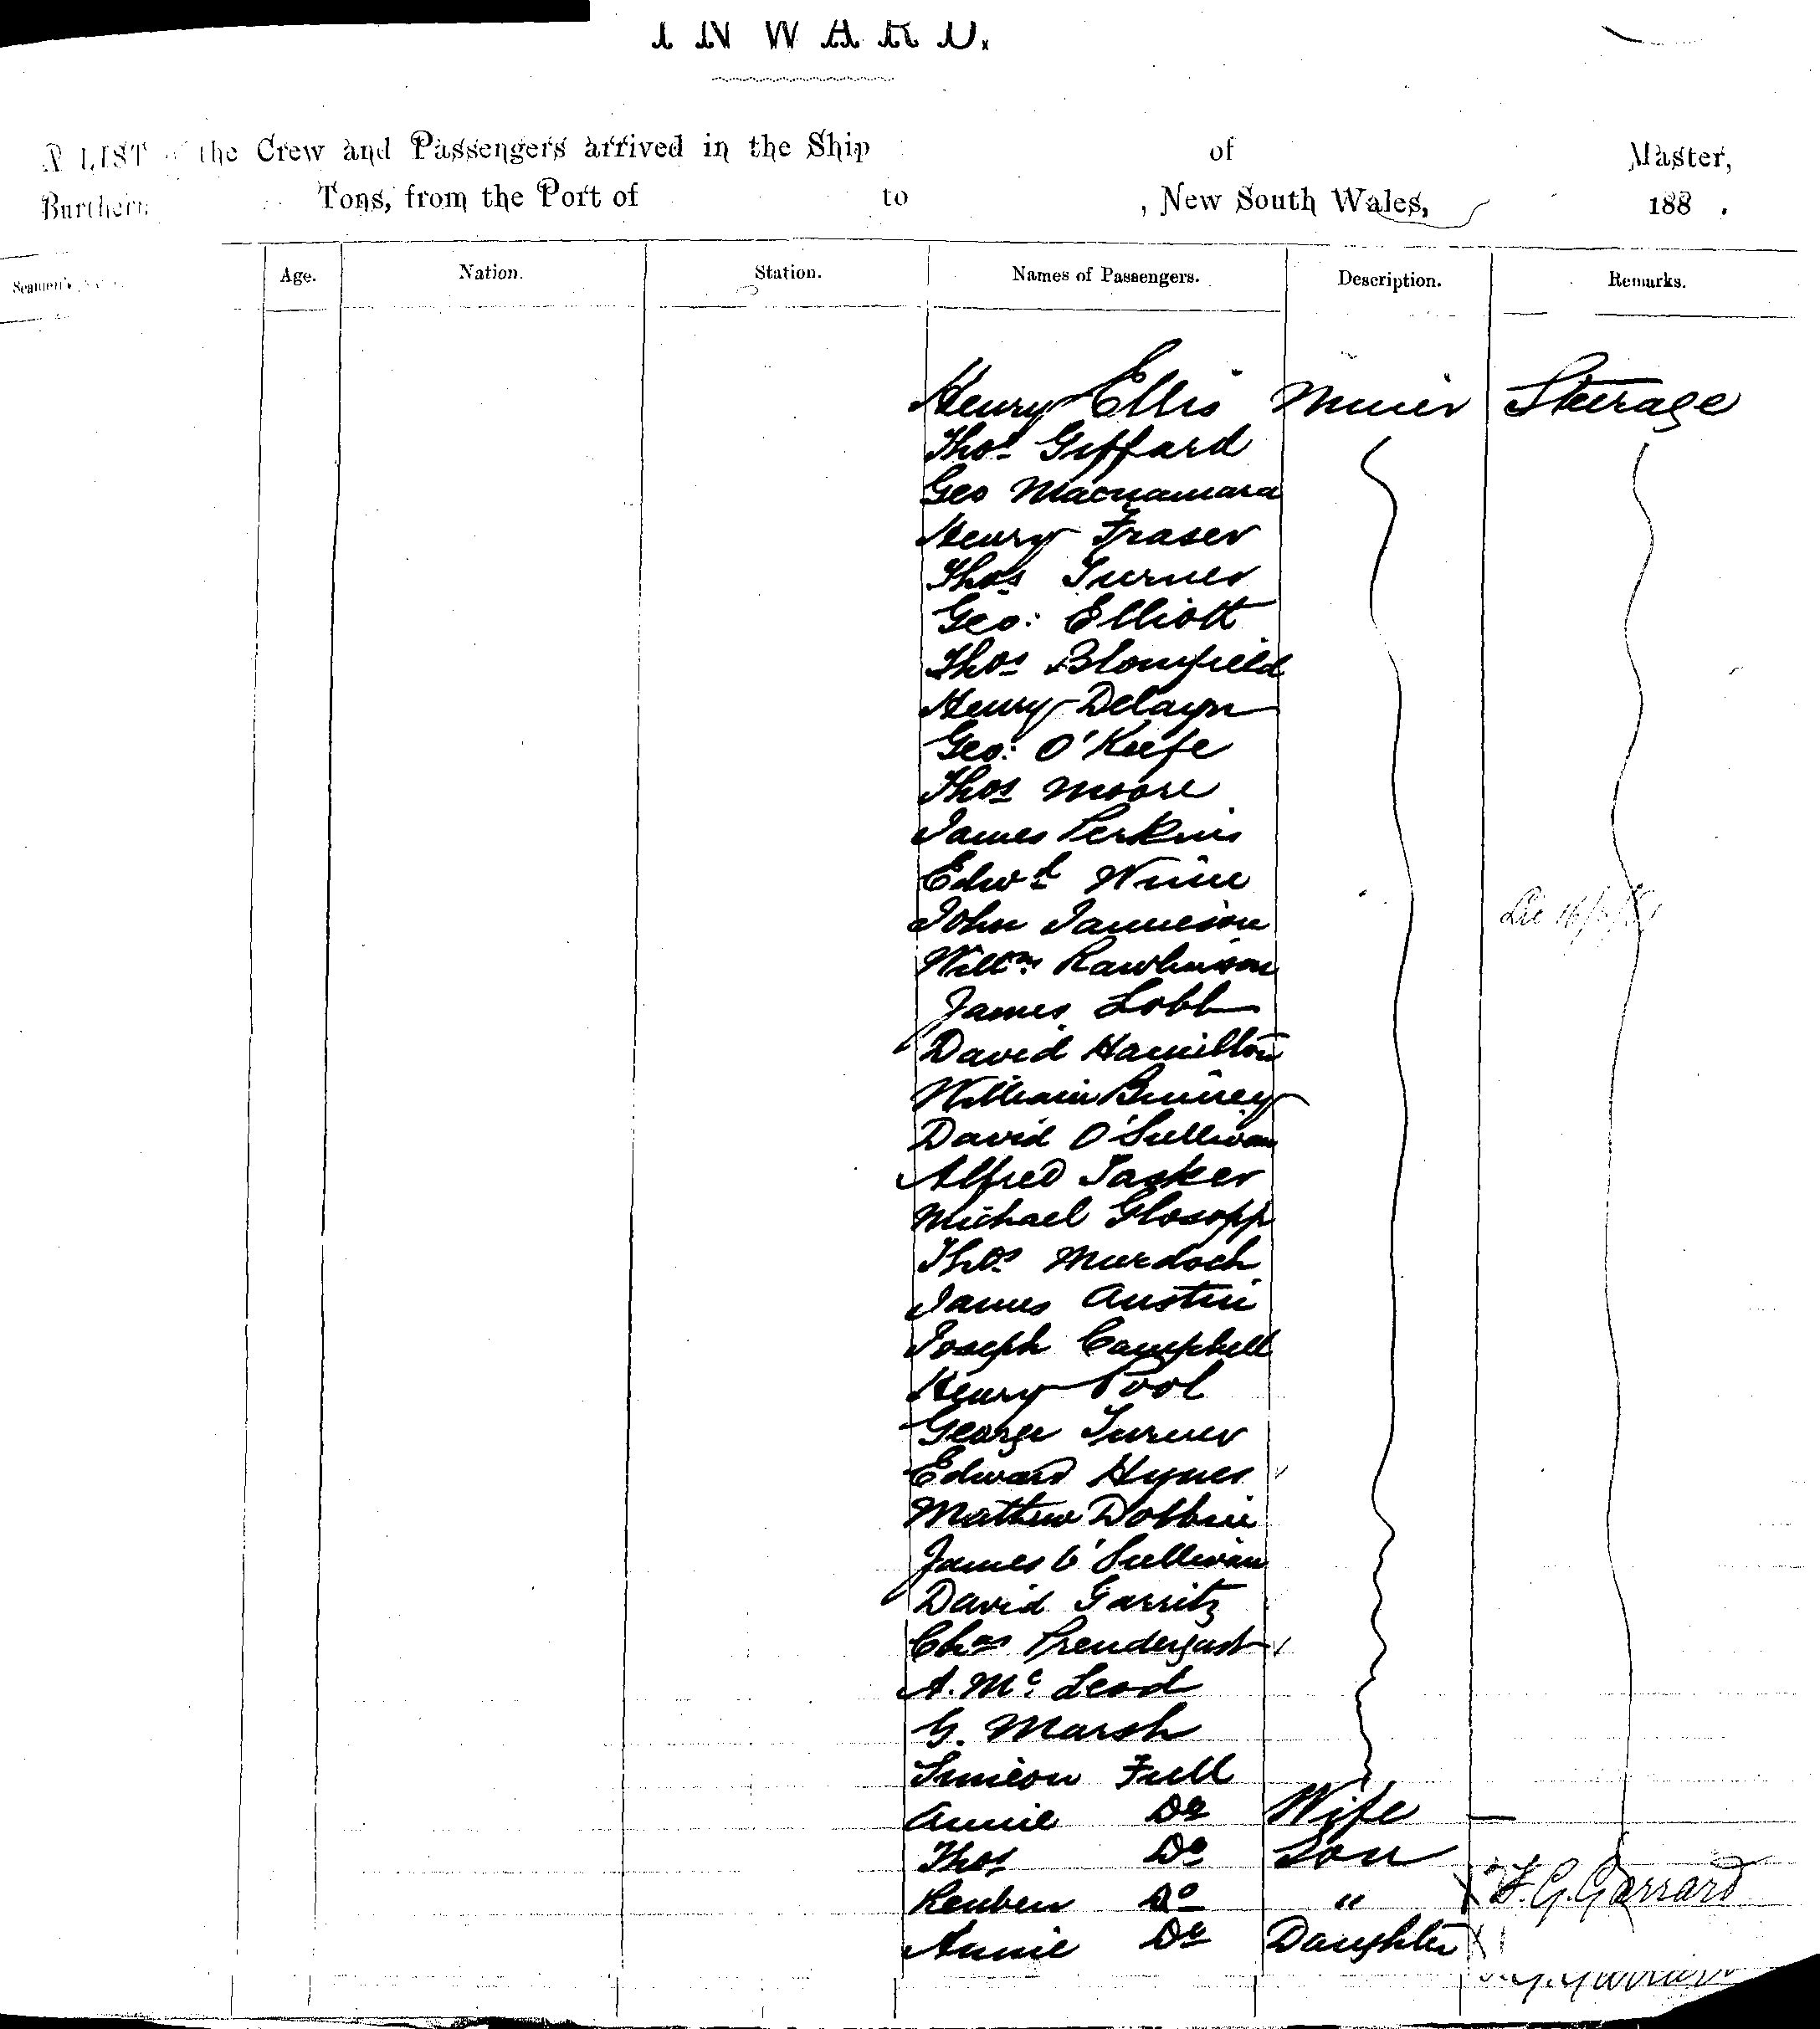 INWARD.
A LIST of the Crew and Passengers arrived in the Ship of Master,
Burthen Tons, from the Port of to , New South Wales, 188 .
Seamen's Age. Nation. Station. Names of Passengers. Description. Remarks.
Henry Ellis Miner Steerage
Thos Giffard
Geo Macnamara
Henry Fraser
Thos Turner
Geo: Elliott
Thos Blomfield
Henry
Geo: O'Keefe
Thos Moore
James Perkins
Edwd
John Jamieson
Willm Rawlinson
James Lobb
David Hamilton
William Binney
David O'Sullivan
Alfred Tasker
Michael Glosopp
Thos Murdoch
James Austin
Joseph Campbell
Henry Pool
George Turner
Edward Hynes
Mathew Dobbie
James O'Sullivan
David Garritz
Chas Prendergast
A. Mc Leod
G. Marsh
Simeon Full
Annie Do Wife —
Thos Do Son
Reuben Do " F. G. Garrard
Annie Do Daughter